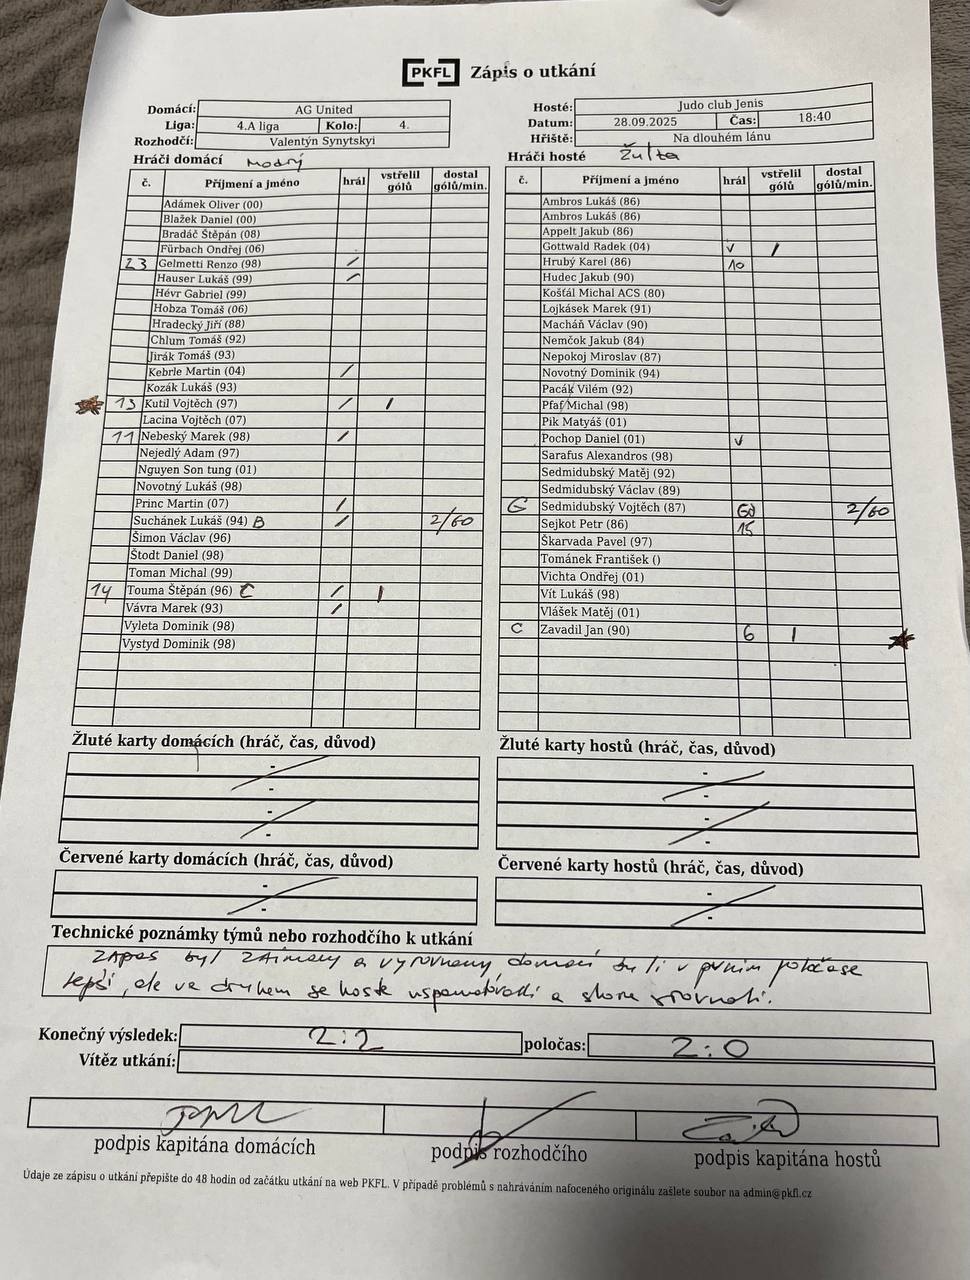 PKFL Zápis o utkání
Domácí: AG United
Liga: 4.A liga Kolo: 4.
Rozhodčí: Valentýn Synytskyi
Hosté: Judo club Jenis
Datum: 28.09.2025 Čas: 18:40
Hřiště: Na dlouhém lánu
Hráči domácí Modrý
č. Příjmení a jméno hrál vstřelil gólů dostal gólů/min.
Adámek Oliver (00)
Blažek Daniel (00)
Bradáč Štěpán (08)
Fürbach Ondřej (06)
23 Gelmetti Renzo (98) /
Hauser Lukáš (99) /
Hévr Gabriel (99)
Hobza Tomáš (06)
Hradecký Jiří (88)
Chlum Tomáš (92)
Jirák Tomáš (93)
Kebrle Martin (04) /
Kozák Lukáš (93)
13 Kutil Vojtěch (97) / 1
Lacina Vojtěch (07)
11 Nebeský Marek (98) /
Nejedlý Adam (97)
Nguyen Son tung (01)
Novotný Lukáš (98)
Princ Martin (07) /
Suchánek Lukáš (94) B / 2/60
Šimon Václav (96)
Štodt Daniel (98)
Toman Michal (99)
14 Touma Štěpán (96) C / 1
Vávra Marek (93) /
Vyleta Dominik (98)
Vystyd Dominik (98)
Hráči hosté Žulta
č. Příjmení a jméno hrál vstřelil gólů dostal gólů/min.
Ambros Lukáš (86)
Ambros Lukáš (86)
Appelt Jakub (86)
Gottwald Radek (04) v 1
Hrubý Karel (86) 10
Hudec Jakub (90)
Košťál Michal ACS (80)
Lojkásek Marek (91)
Macháň Václav (90)
Nemčok Jakub (84)
Nepokoj Miroslav (87)
Novotný Dominik (94)
Pacák Vilém (92)
Pfaf Michal (98)
Pik Matyáš (01)
Pochop Daniel (01) v
Sarafus Alexandros (98)
Sedmidubský Matěj (92)
Sedmidubský Václav (89)
G Sedmidubský Vojtěch (87) 60 2/60
Sejkot Petr (86) 15
Škarvada Pavel (97)
Tománek František ()
Vichta Ondřej (01)
Vít Lukáš (98)
Vlášek Matěj (01)
C Zavadil Jan (90) 6 1
Žluté karty domácích (hráč, čas, důvod)
-
-
-
-
Žluté karty hostů (hráč, čas, důvod)
-
-
-
-
Červené karty domácích (hráč, čas, důvod)
-
-
Červené karty hostů (hráč, čas, důvod)
-
-
Technické poznámky týmů nebo rozhodčího k utkání
Zapas byl zaimavy a vyrovnany, domaci byli v prvnim poločase
lepší, ale ve druhem se hoste vspamatovali a skore srovnali.
Konečný výsledek: 2:2 poločas: 2:0
Vítěz utkání:
podpis kapitána domácích podpis rozhodčího podpis kapitána hostů
Údaje ze zápisu o utkání přepište do 48 hodin od začátku utkání na web PKFL. V případě problémů s nahráváním nafoceného originálu zašlete soubor na admin@pkfl.cz